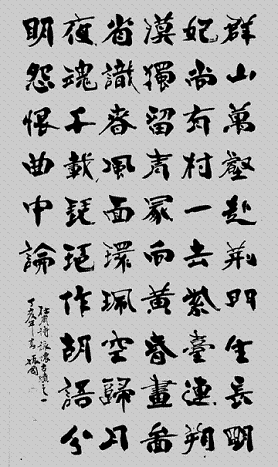 群山萬壑赴荊門生長明
妃尚有村一去紫臺連朔
漠獨留青冢向黃昏畫啚
省識春風面環珮空歸月
夜魂千載琵琶作胡語分
明怨恨曲中論
杜甫詩詠懷古蹟之一
丁亥年